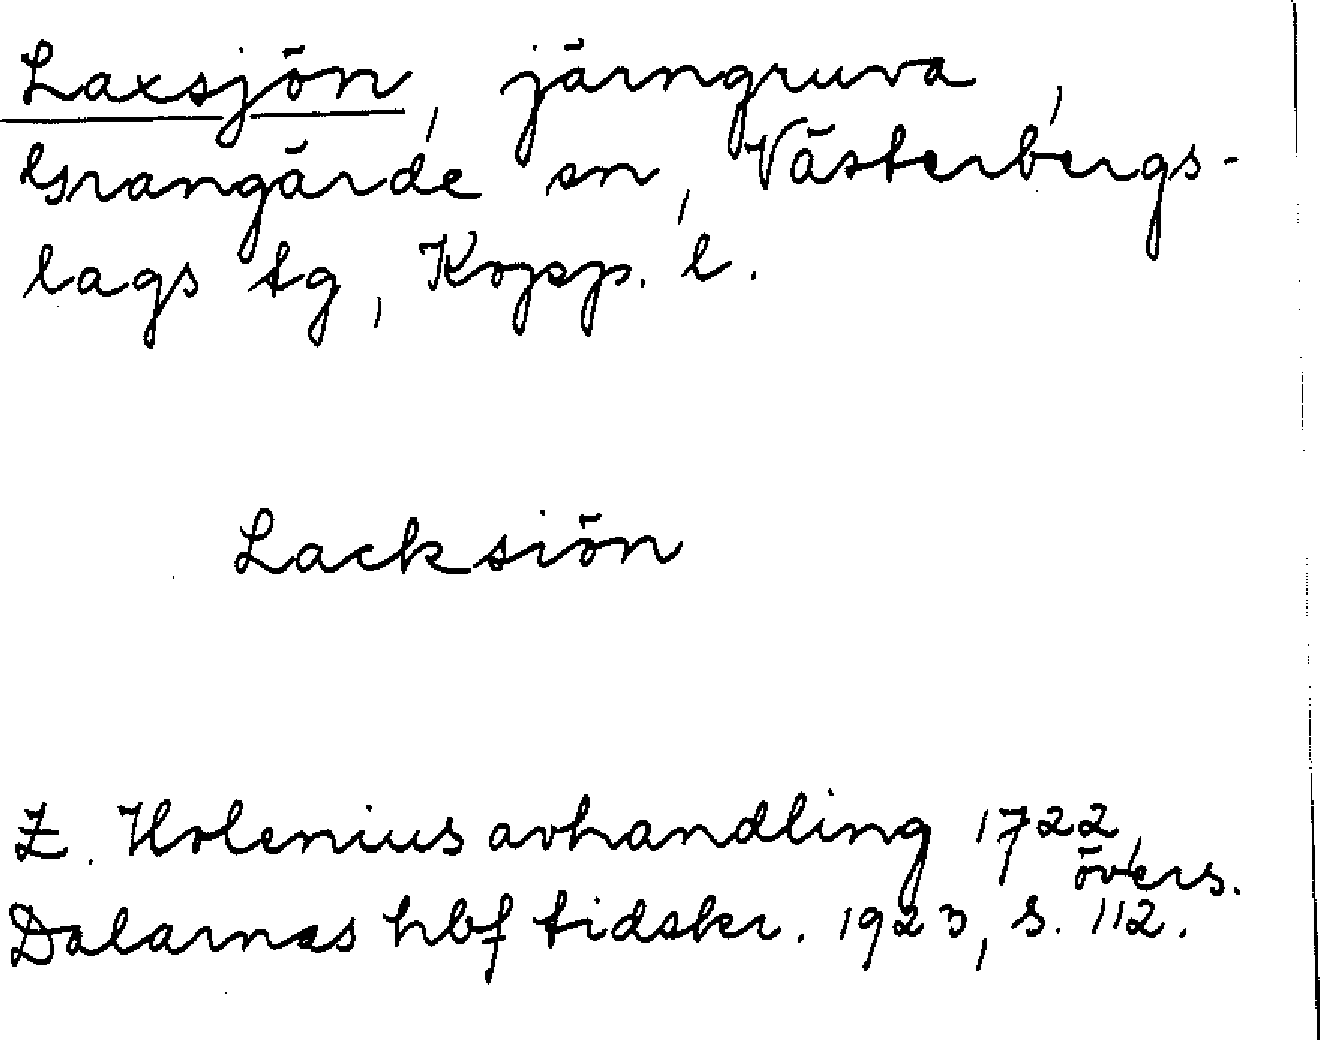 Laxsjön, järngruva,
Grangärde sn, Västerbergs-
lags tg, Kopp. l.
Lacksiön
Z. Holenius avhandling 1722,
övers.
Dalarnas hbf tidskr. 1923, s. 112.